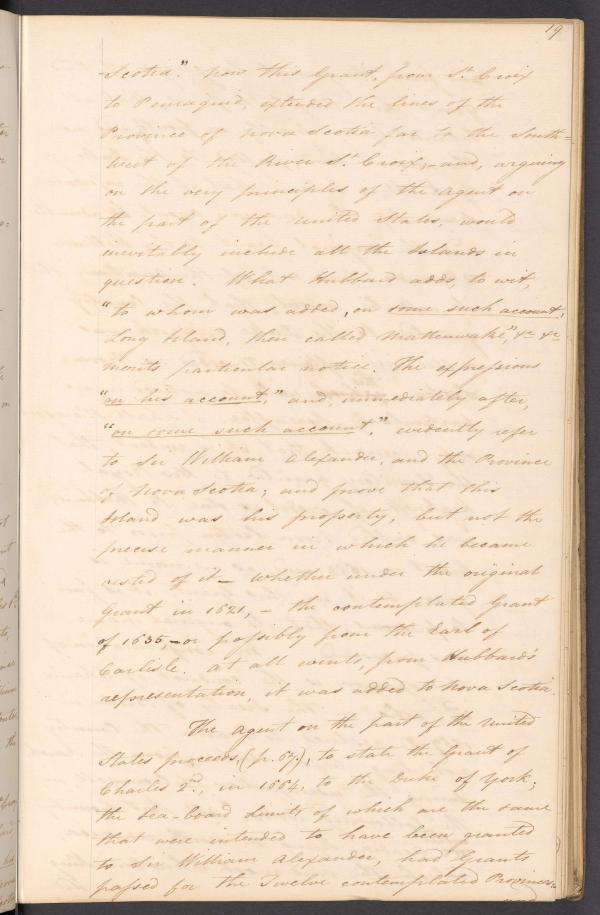 19
Scotia." Now this Grant, from St. Croix
to Pemaquid, extended the lines of the
Province of Nova Scotia far to the South=
west of the River St. Croix,- and, arguing
on the very principles of the agent on
the part of the United States, would
inevitably include all the Islands in
question. What Hubbard adds, to wit,
"to whom was added, on some such account,
Long Island, then called Mattenwake," &c &c
merits particular notice. The expressions
"on his account," and, immediately after,
"on some such account," evidently refer
to Sir William Alexander, and the Province
of Nova Scotia; and prove that this
Island was his property, but not the
precise manner in which he became
vested of it - whether under the original
Grant in 1621, - the contemplated Grant
of 1635, - or possibly from the Earl of
Carlisle. At all events, from Hubbard's
representation, it was added to Nova Scotia.
The agent on the part of the United
States proceeds, (p. 67.), to state the Grant of
Charles 2d., in 1664, to the Duke of York;
the sea-board limits of which are the same
that were intended to have been granted
to Sir William Alexander, had Grants
passed for the Twelve contemplated Provinces